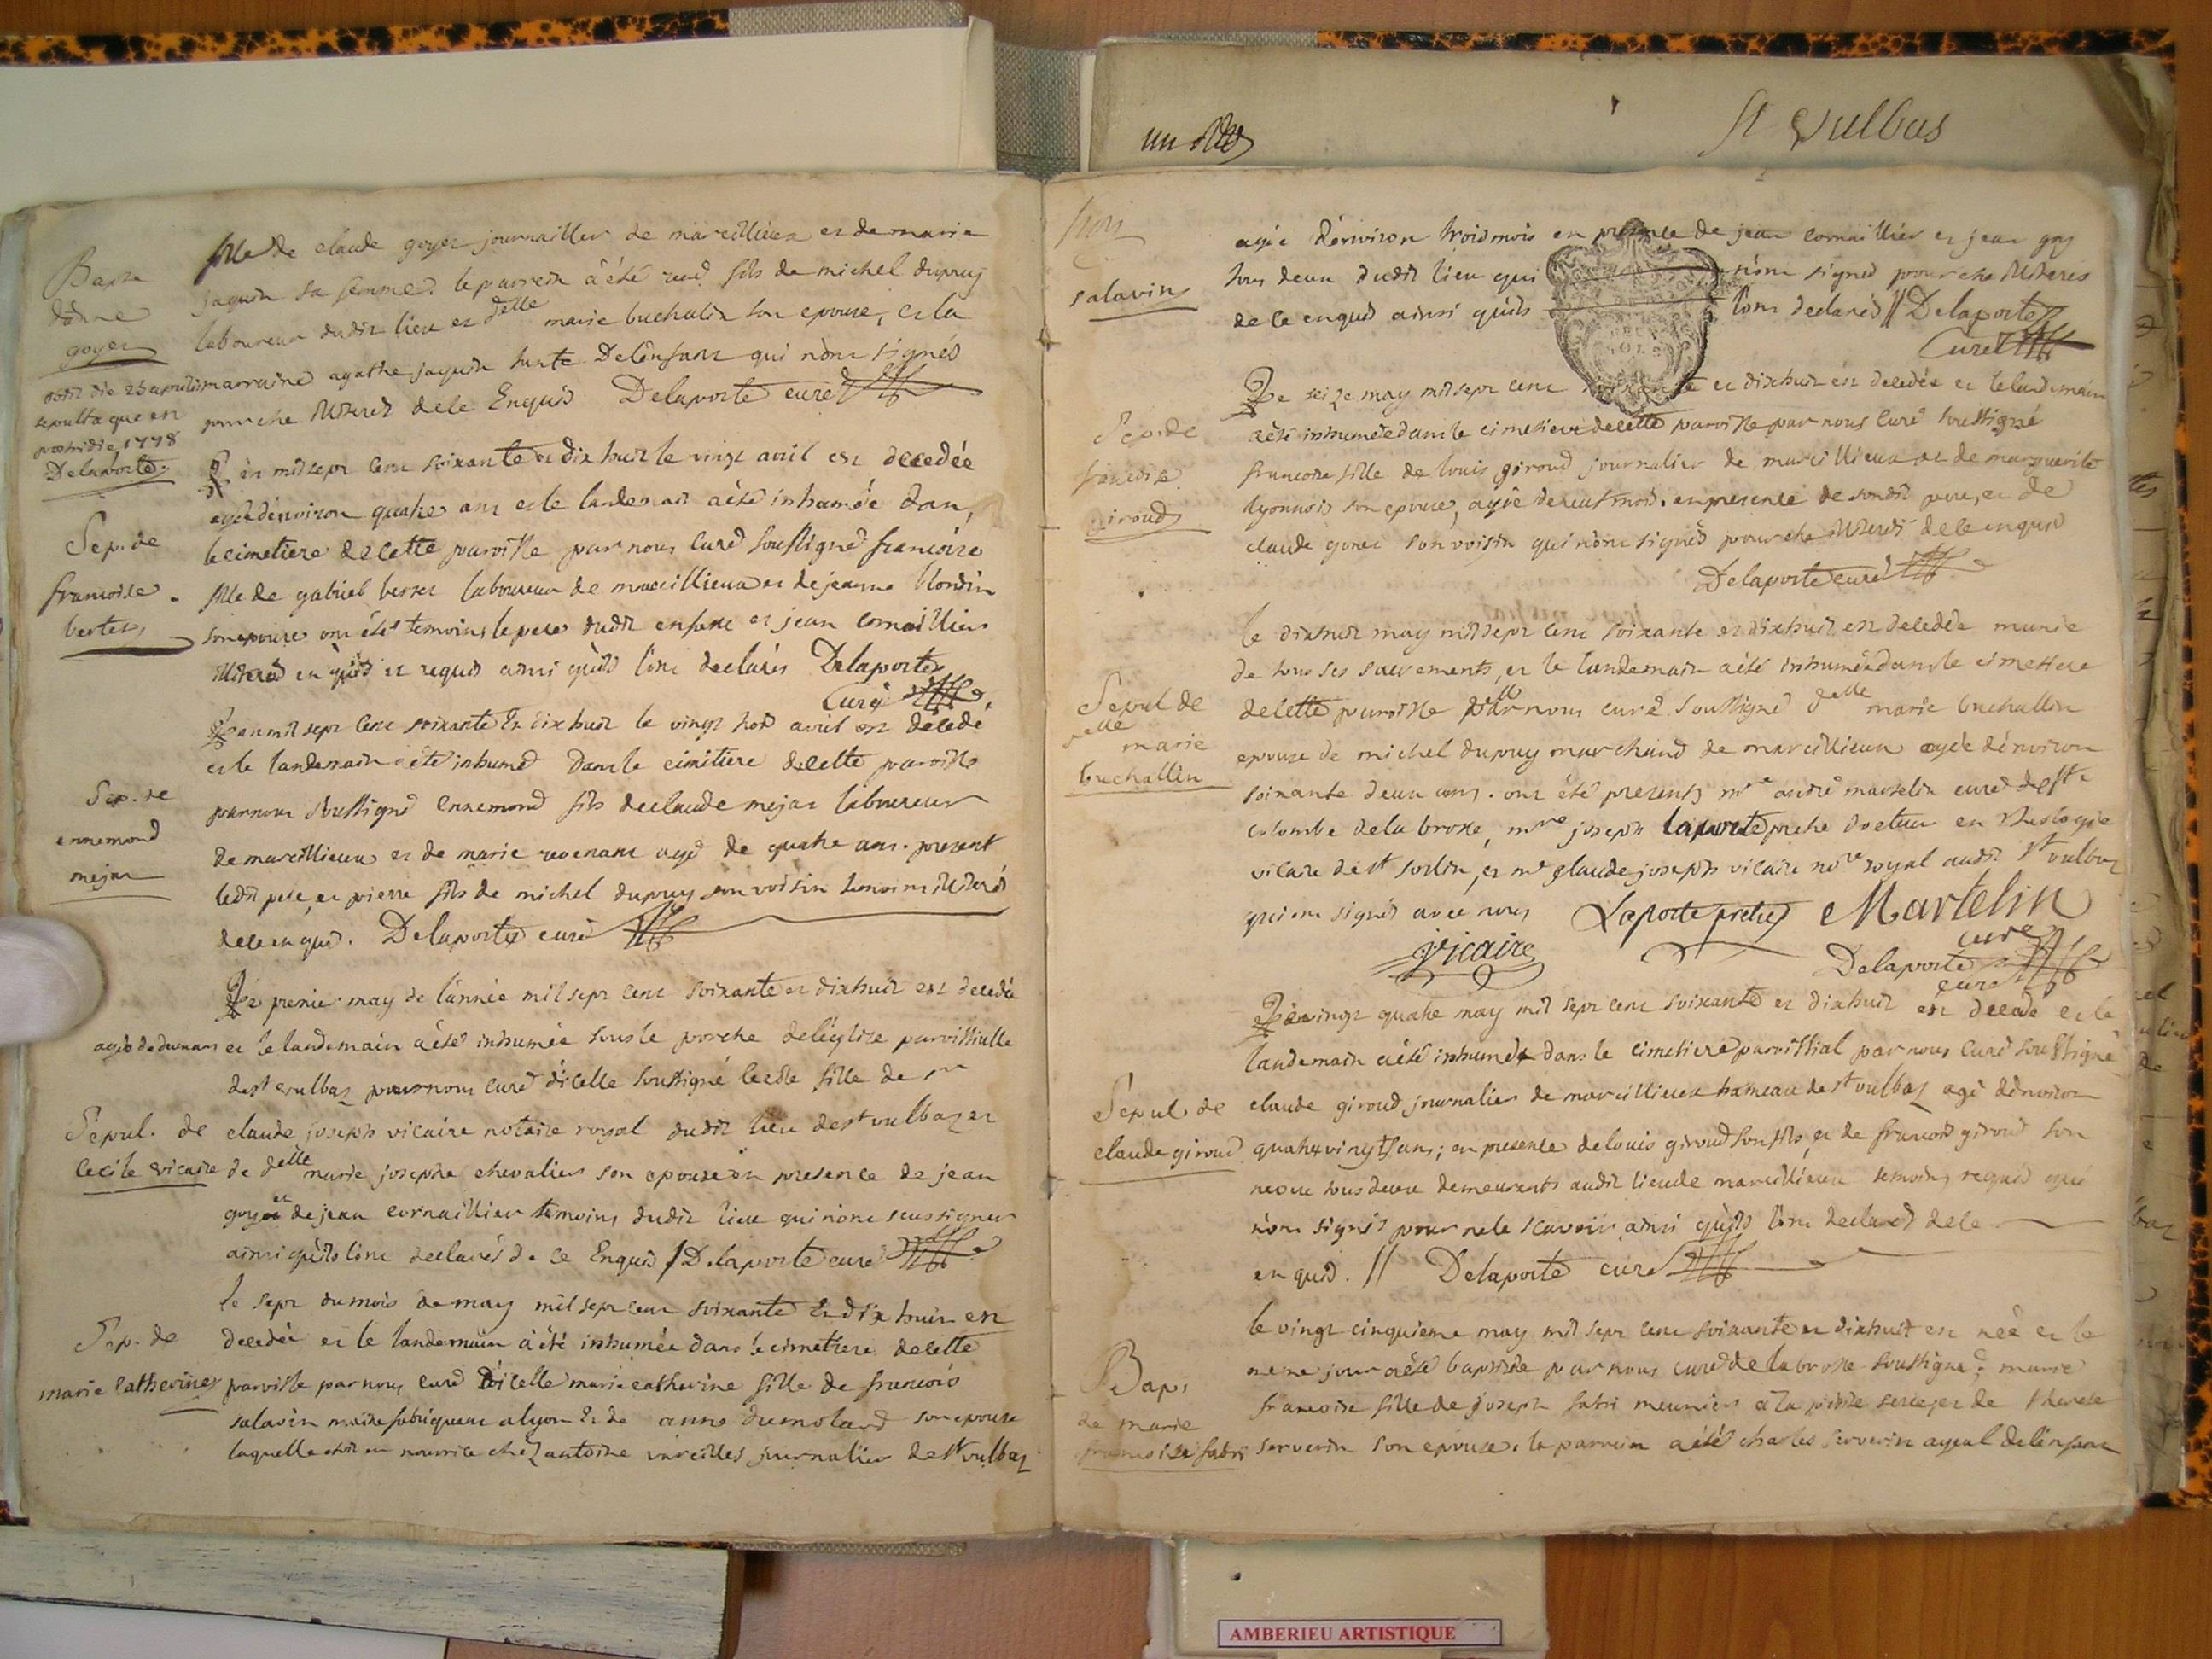 St Vulbas
fille de claude goyet journaillier de marcillieux et de marie
jaquin sa femme. le parrein a été fils de michel dupuy
laboureur dudit lieu et delle marie buchalin son epouse, et la
marraine agathe jaquin tante de l'enfant qui n'ont signés
pour che illiterés de ce Enquis Delaporte curé
Bapte
d'anne
goyet
obiit die 25 aprilis
sepulta que est
postridie 1778
Delaporte
L'an mil sept cent soixante et dix huit le vingt avril est decedée
agée d'environ quatre ans et le landemain a été inhumée dans
le cimetiere de cette paroisse par nous curé soussigné francoise
fille de gabriel berter laboureur de marcillieux et de jeanne blondin
son epouse ont été temoins le pere dudit enfant et jean cornaillier
illiterés enquis et requis ainsi qu'ils l'ont declarés Delaporte
Curé
Sep. de
francoise
berter
L'an mil sept cent soixante et dix huit le vingt trois avril est decedé
et le landemain a été inhumé dans le cimitiere de cette paroisse
par nous soussigné ennemond fils de claude mejat laboureur
de marcillieux et de marie revenant agé de quatre ans. present
ledit pere, et pierre fils de michel dupuy son voisin temoins illiterés
de ce enquis. Delaporte curé
Sep. de
ennemond
mejat
Le premier may de l'année mil sept cent soixante et dixhuit est decedée
agée de deux ans et le landemain a été inhumée sous le porche de l'église paroissialle
de st vulbaz par nous curé d'icelle soussigné cecile fille de sr
claude joseph vicaire notaire royal dudit lieu de st vulbaz et
de delle marie josephe chevalier son epouse en presence de jean
goy et de jean cornaillier temoins dudit lieu qui n'ont sceu signer
ainsi qu'ils l'ont declarés de ce Enquis // Delaporte curé
Sepul. de
cecile vicaire
le sept du mois de may mil sept cent soixante et dix huit est
decedée et le landemain a été inhumée dans le cimetiere de cette
paroisse par nous curé d'icelle marie catherine fille de francois
salavin maitre fabriquant a lyon et de anne dumolard son epouse
laquelle étoit en nourrice chez antoine vareilles journalier de st vulbaz
Sep. de
marie catherine
salavin
agée d'environ trois mois en presence de jean cornaillier et jean goy
tous deux dudit lieu qui n'ont signés pour che illiterés
de ce enquis ainsi qu'ils l'ont declarés // Delaporte
Curé
Le seize may mil sept cent soixante et dixhuit est decedée et le landemain
a été inhumée dans le cimetiere de cette paroisse par nous curé soussigné
francoise fille de louis giroud journalier de marcillieux et de marguerite
lyonnois son epouse, agée de neuf mois. en presence de sondit pere, et de
claude goyet son voisin qui n'ont signés pour che illiterés de ce enquis
Delaporte curé
Sep. de
francoise
giroud
le dixhuit may mil sept cent soixante et dixhuit est decedée munie
de tous ses sacrements, et le landemain a été inhumée dans le cimetiere
de cette paroisse par nous curé soussigné delle marie buchallin
epouse de michel dupuy marchand de marcillieux agée d'environ
soixante deux ans. ont été presents mre andré martelin curé de ste
colombe de la brosse, mre joseph laporte pretre docteur en theologie
vicaire de st sorlin, et me claude joseph vicaire nore royal audit st vulbaz
qui ont signés avec nous Laporte pretre Martelin
curé
Vicaire
Delaporte
curé
Sepul de
delle
marie
buchallin
Le vingt quatre may mil sept cent soixante et dixhuit est decedé et le
landemain a été inhumé dans le cimetiere paroissial par nous curé soussigné
claude giroud journalier de marcillieux hameau de st vulbaz agé d'environ
quatre vingt ans; en presence de louis giroud son fils, et de francois giroud son
neveu tous deux demeurants audit lieu de marcillieux temoins requis qui
n'ont signés pour ne le scavoir ainsi qu'ils l'ont declarés de ce
enquis. // Delaporte curé
Sepul. de
claude giroud
le vingt cinquieme may mil sept cent soixante et dixhuit est née et le
meme jour a été baptisée par nous curé de la brosse soussigné; marie
francoise fille de joseph fabri meunier a la petite serre, et de therese
serverin son epouse. le parrein a été charles serverin ayeul de l'enfant
Bapt
de marie
francoise fabri
AMBERIEU ARTISTIQUE